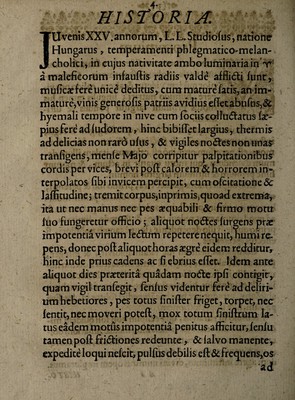 4.
HISTORIA.
JUvenis XXV. annorum, L. L. Studiosus, natione
Hungarus, temperamenti phlegmatico-melan-
cholici, in cujus nativitate ambo luminaria in ♈
à maleficorum infaustis radiis valdè afflicti sunt,
musicæ ferè unicè deditus, cum maturè satis, an im-
maturè, vinis generosis patriis avidius esset abusus, &
hyemali tempore in nive cum sociis colluctatus sæ-
pius ferè ad sudorem, hinc bibisset largius, thermis
ad delicias non rarò usus, & vigiles noctes non unas
transigens, mense Majo corripitur palpitationibus
cordis per vices, brevi post calorem & horrorem in-
terpolatos sibi invicem percipit, cum oscitatione &
lassitudine; tremit corpus, inprimis, quoad extrema,
ita ut nec manus nec pes æquabili & firmo motu
suo fungeretur officio; aliquot noctes surgens præ
impotentiâ virium lectum repetere nequit, humi re-
pens, donec post aliquot horas ægrè eidem redditur,
hinc inde prius cadens ac si ebrius esset. Idem ante
aliquot dies præteritâ quâdam nocte ipsi contigit,
quam vigil transegit, sensus videntur ferè ad deliri-
um hebetiores, pes totus sinister friget, torpet, nec
sentit, nec moveri potest, mox totum sinistrum la-
tus eâdem motûs impotentiâ penitus afficitur, sensu
tamen post frictiones redeunte, & salvo manente,
expeditè loqui nescit, pulsus debilis est & frequens, os
ad